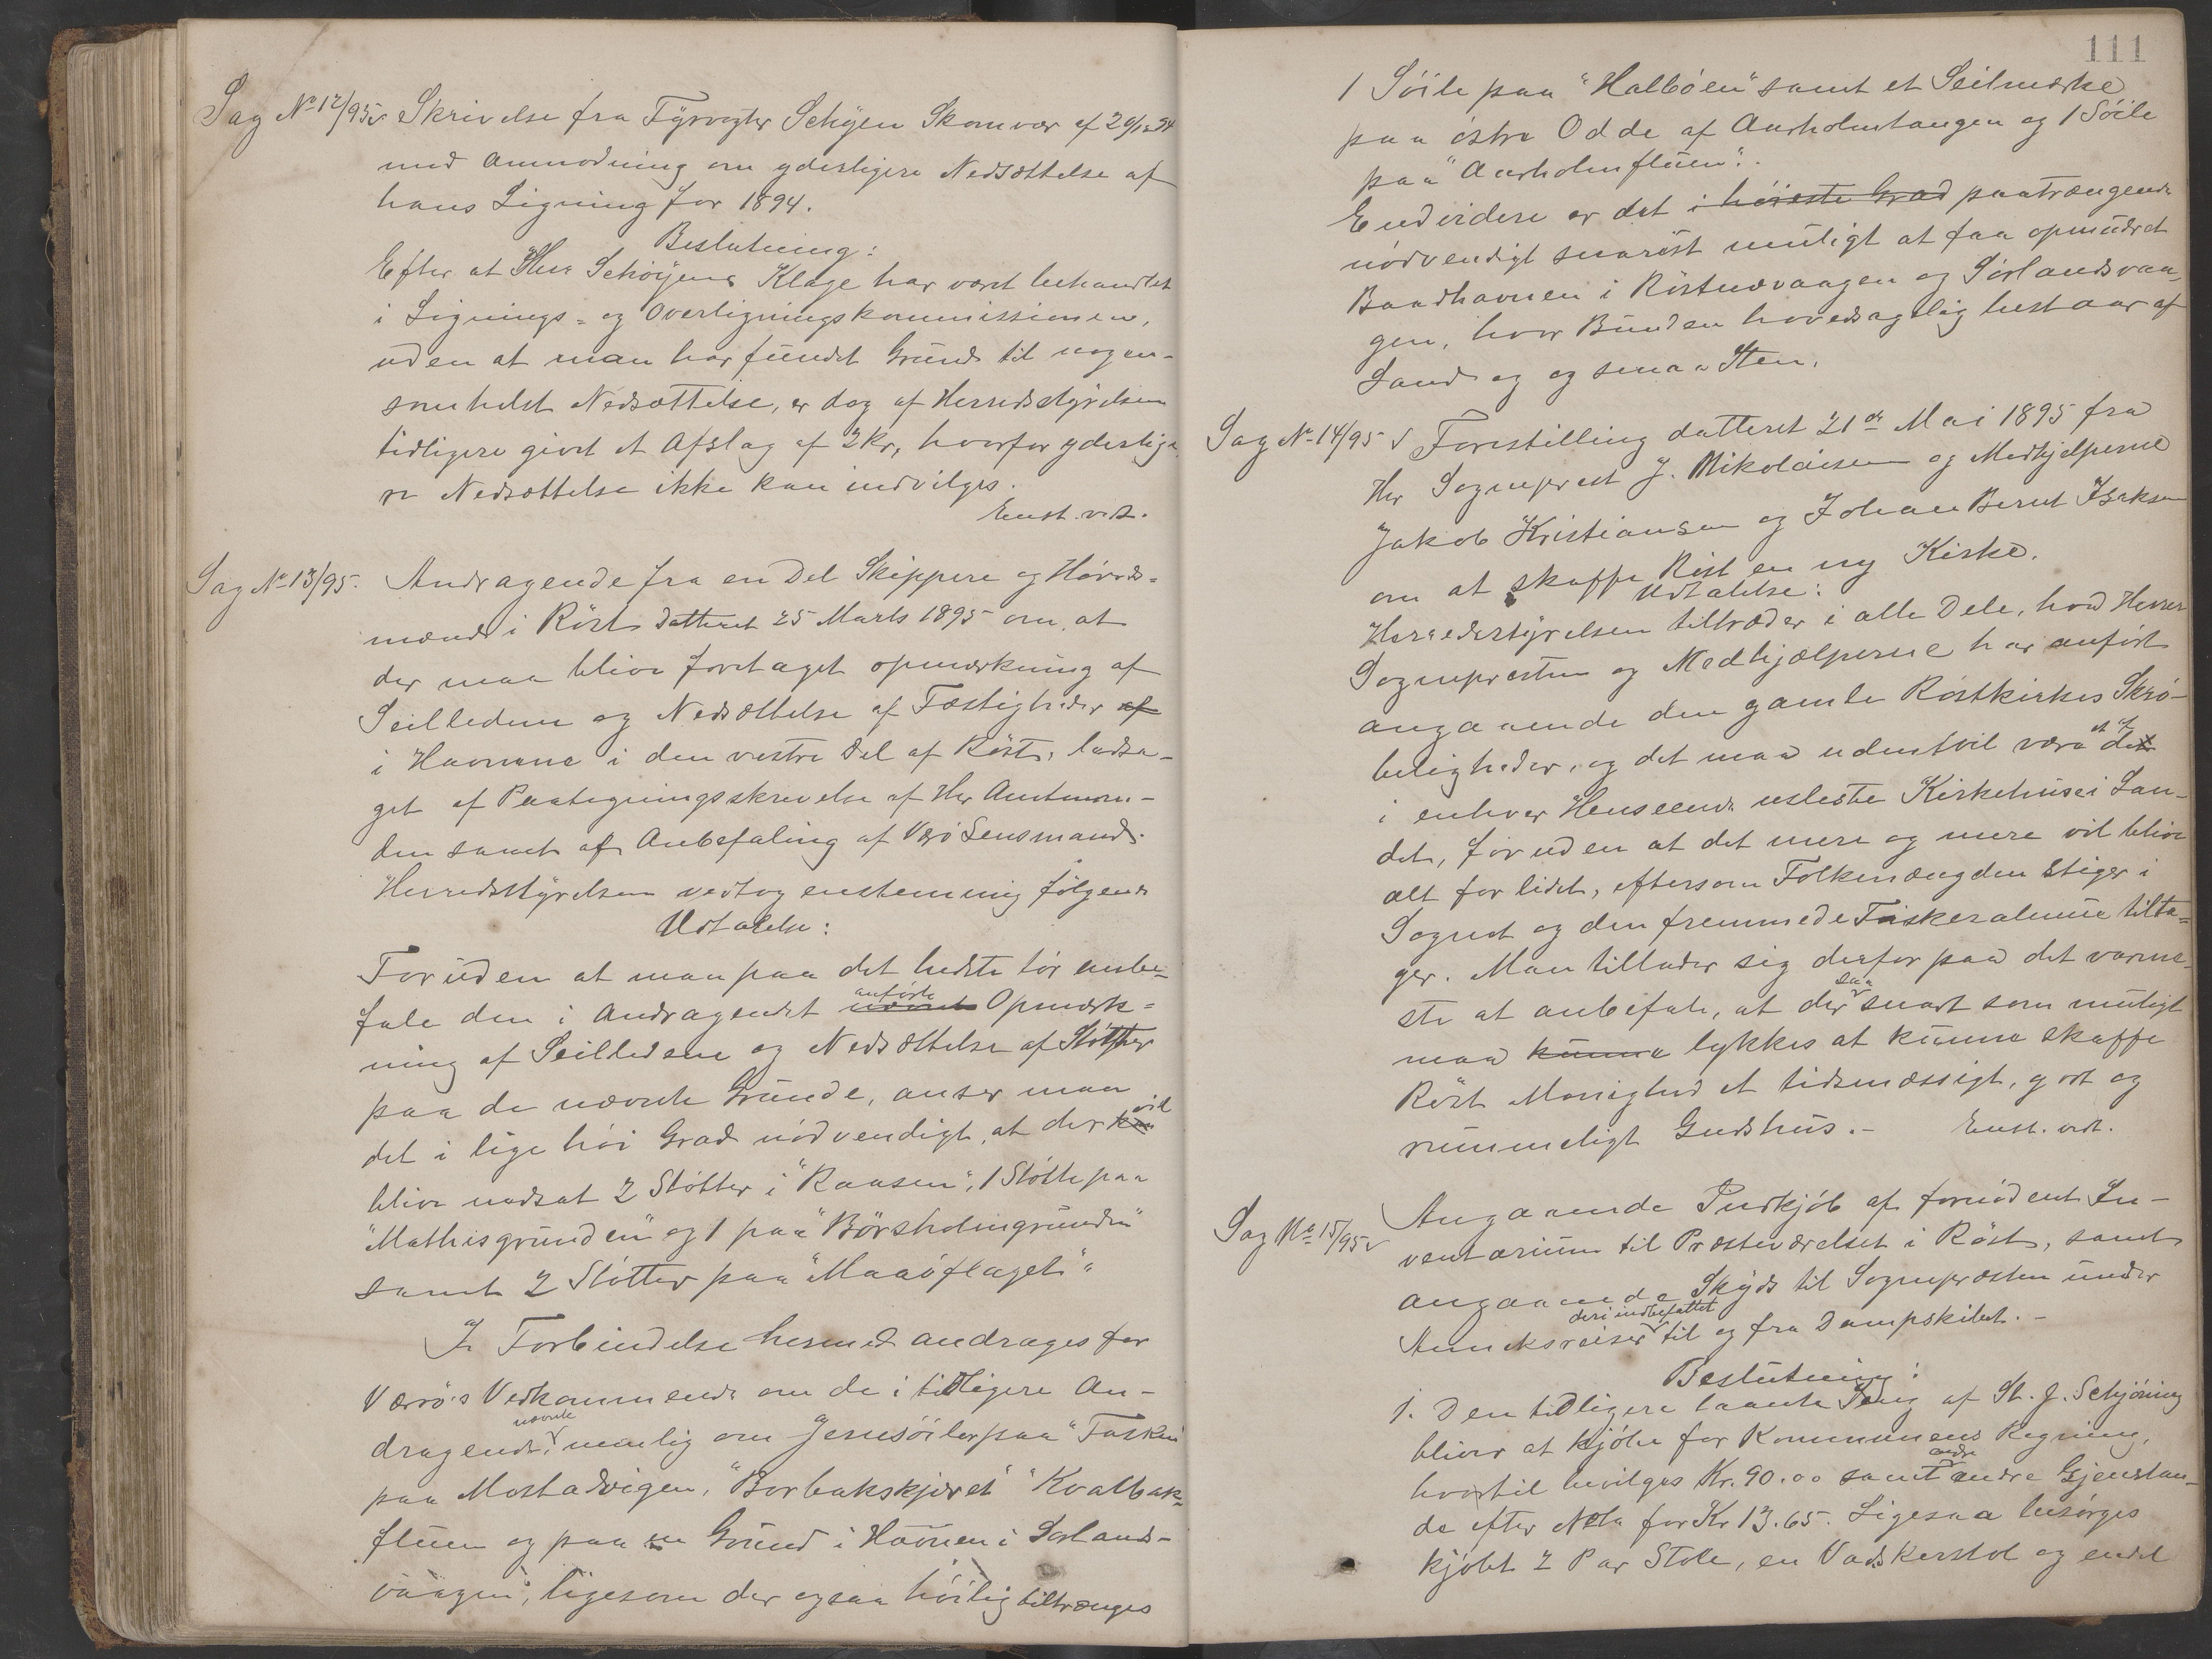 Sag No 12/95 Skrivelse fra Fyrvogter Schöjen Skomvær af 29/12 94
med Anmodning om yderligere Nedsættelse af
hans Ligning for 1894.
Beslutning:
Efter at Herr Schöyens Klage har været behandlet
i Lignings- og Overligningskommissionen,
uden at man har fundet Grund til nogen-
somhelst Nedsættelse, er dog af Herredsstyrelsen
tidligere givet et Afslag af 2 Kr, hvorfor yderlige-
re Nedsættelse ikke kan indvilges.
Enst. vedt.
Sag No 13/95. Andragende fra en Del Skippere og Höveds-
mænd i Röst datteret 25 Marts 1895 om, at
der maa blive foretaget opmærkning af
Seilleden og Nedsættelse af Fæstigheder af
i Havnene i den vestre Del af Röst, ledsa-
get af Paategningsskrivelse af Hr Amtman-
den samt af Anbefaling af Værö Lensmand.
Herredsstyrelsen vedtog enstemmig fölgende
Udtalelse:
Foruden at man paa det bedste tör anbe-
fale den i Andragendet nævnte anförte Opmærk-
ning af Seilledene og Nedsættelse af Stötter
paa de nævnte Grunde, anser man
det i lige höi Grad nödvendigt, at der kan vil
blive nedsat 2 Stötter i "Raasen", 1 Stötte paa
"Mathisgrunden" og 1 paa "Börsholmgrunden"
samt 2 Stötter paa "Maaöflaget"
I Forbindelse hermed andrages for
Værö's Vedkommende om de i tidligere An-
dragende nævnte nemlig om Jernsöiler paa "Tasken"
paa Mostadvigen, "Borbakskjæret" "Kvalbak-
fluen og paa en Grund i Havnen i Sørlands-
vaagen, ligesom der ogsaa höilig tiltrænges
111
1 Söile paa "Halböen" samt et Seilmærke
paa östre Odde af Aarholmtangen og 1 Söile
paa "Aarholmfluen".
Endvidere er det i höieste Grad paatrængende
nödvendigt snarest muligt at faa opmudret
Baadhavnen i Röstnesvaagen og Sörlandsvaa-
gen, hvor Bunden hovedsagelig bestaar af
Sand og og smaa Sten.
Sag No 14/95 Forestilling datteret 21de Mai 1895 fra
Hr Sogneprest J. Nikolaisen og Medhjelperne
Jakob Kristiansen og Johan Bernt Isaksen
om at skaffe Röst en ny Kirke.
Udtalelse:
Herredsstyrelsen tiltræder i alle Dele, hvad Herrer
Sognepresten og Medhjælperne har anfört
angaaende den gamle Röstkirkes Skrö-
beligheder, og det maa udentvil være et af de
i enhver Henseende usleste Kirkehuse i Lan-
det, foruden at det mere og mere vil blive
alt for lidet, eftersom Folkemængden stiger i
Sognet og den fremmede Fiskeralmue tilta-
ger. Man tillader sig derfor paa det varme-
ste at anbefale, at der saa snart som muligt
maa kunne lykkes at kunne skaffe
Röst Menighed et tidsmæssigt, godt og
rummeligt Gudshus.- Enst. vedt.
Sag No 15/95 Angaaende Indkjöb af fornödent In-
ventarium til Presteværelset i Röst, samt
angaaende Skyds til Sognepræsten under
Annexreiser deri indbefattet til og fra Dampskibet.-
Beslutning:
1. Den tidligere laante Seng af St. J. Schjöning
bliver at kjöbe for Kommunens Regning,
hvortil bevilges Kr. 90.00 samt andre Gjenstan-
de efter Nota for Kr 13.65. Ligesaa besörges
kjöbt 2 Par Stole, en Vaskerstol og endel